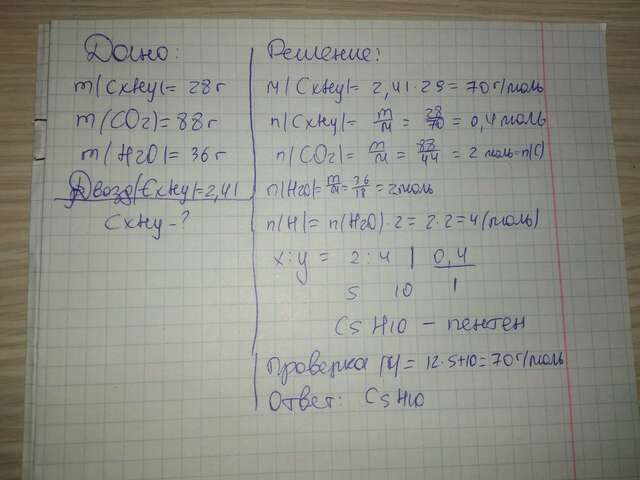 Дано:
m(CxHy)= 28г
m(CO2)=88г
m(H2O)=36г
Dвозд(CxHy)=2,41
CxHy-?
Решение:
M(CxHy)= 2,41·29=70г/моль
n(CxHy)= m/M = 28/70 = 0,4моль
n(CO2)= m/M = 88/44 = 2 моль=n(C)
n(H2O)= m/M = 36/18 = 2моль
n(H)= n(H2O)·2 = 2·2=4(моль)
x:y = 2:4 | 0,4
5 10 1
C5H10 – пентен
Проверка M= 12·5+10=70г/моль
Ответ: C5H10